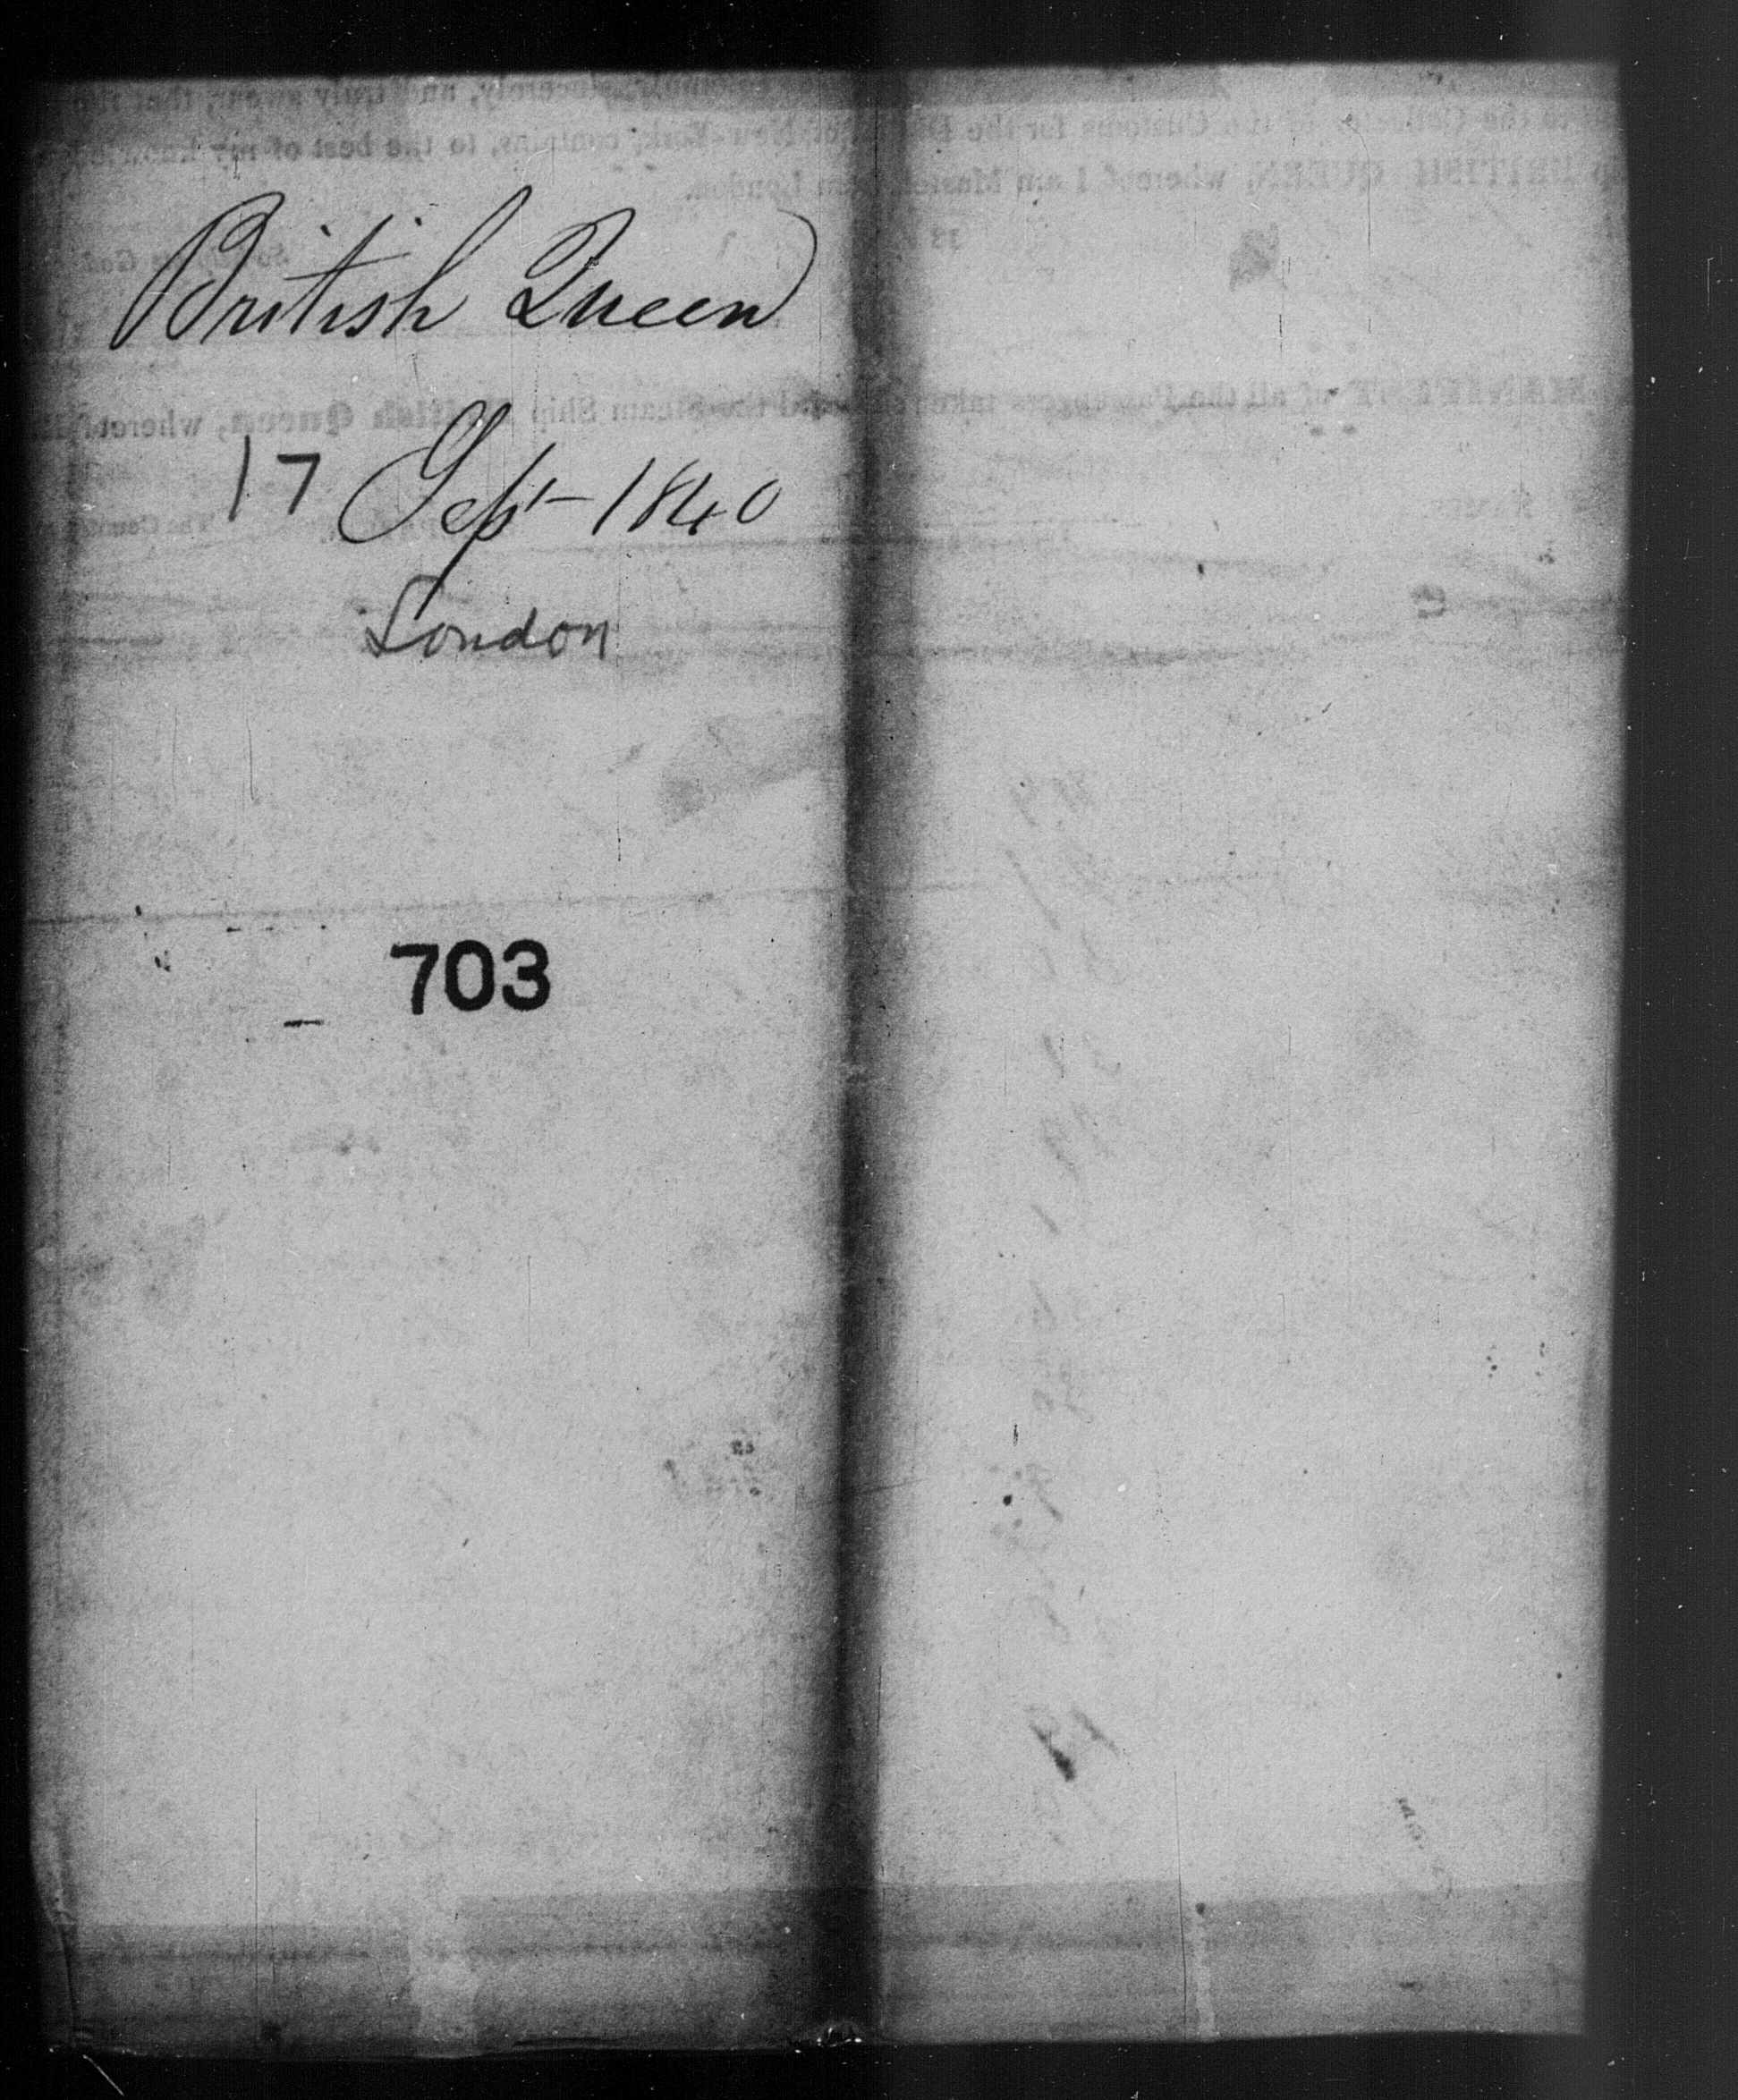 British Queen
17 Sept 1840
London
703
sincerely, and truly swear, that the
to the Collector of the Customs for the District of New-York, contains, to the best of my knowledge
BRITISH QUEEN, whereof I am Master, from London.
MANIFEST of all the Passengers taken on board the Steam Ship British Queen, whereof